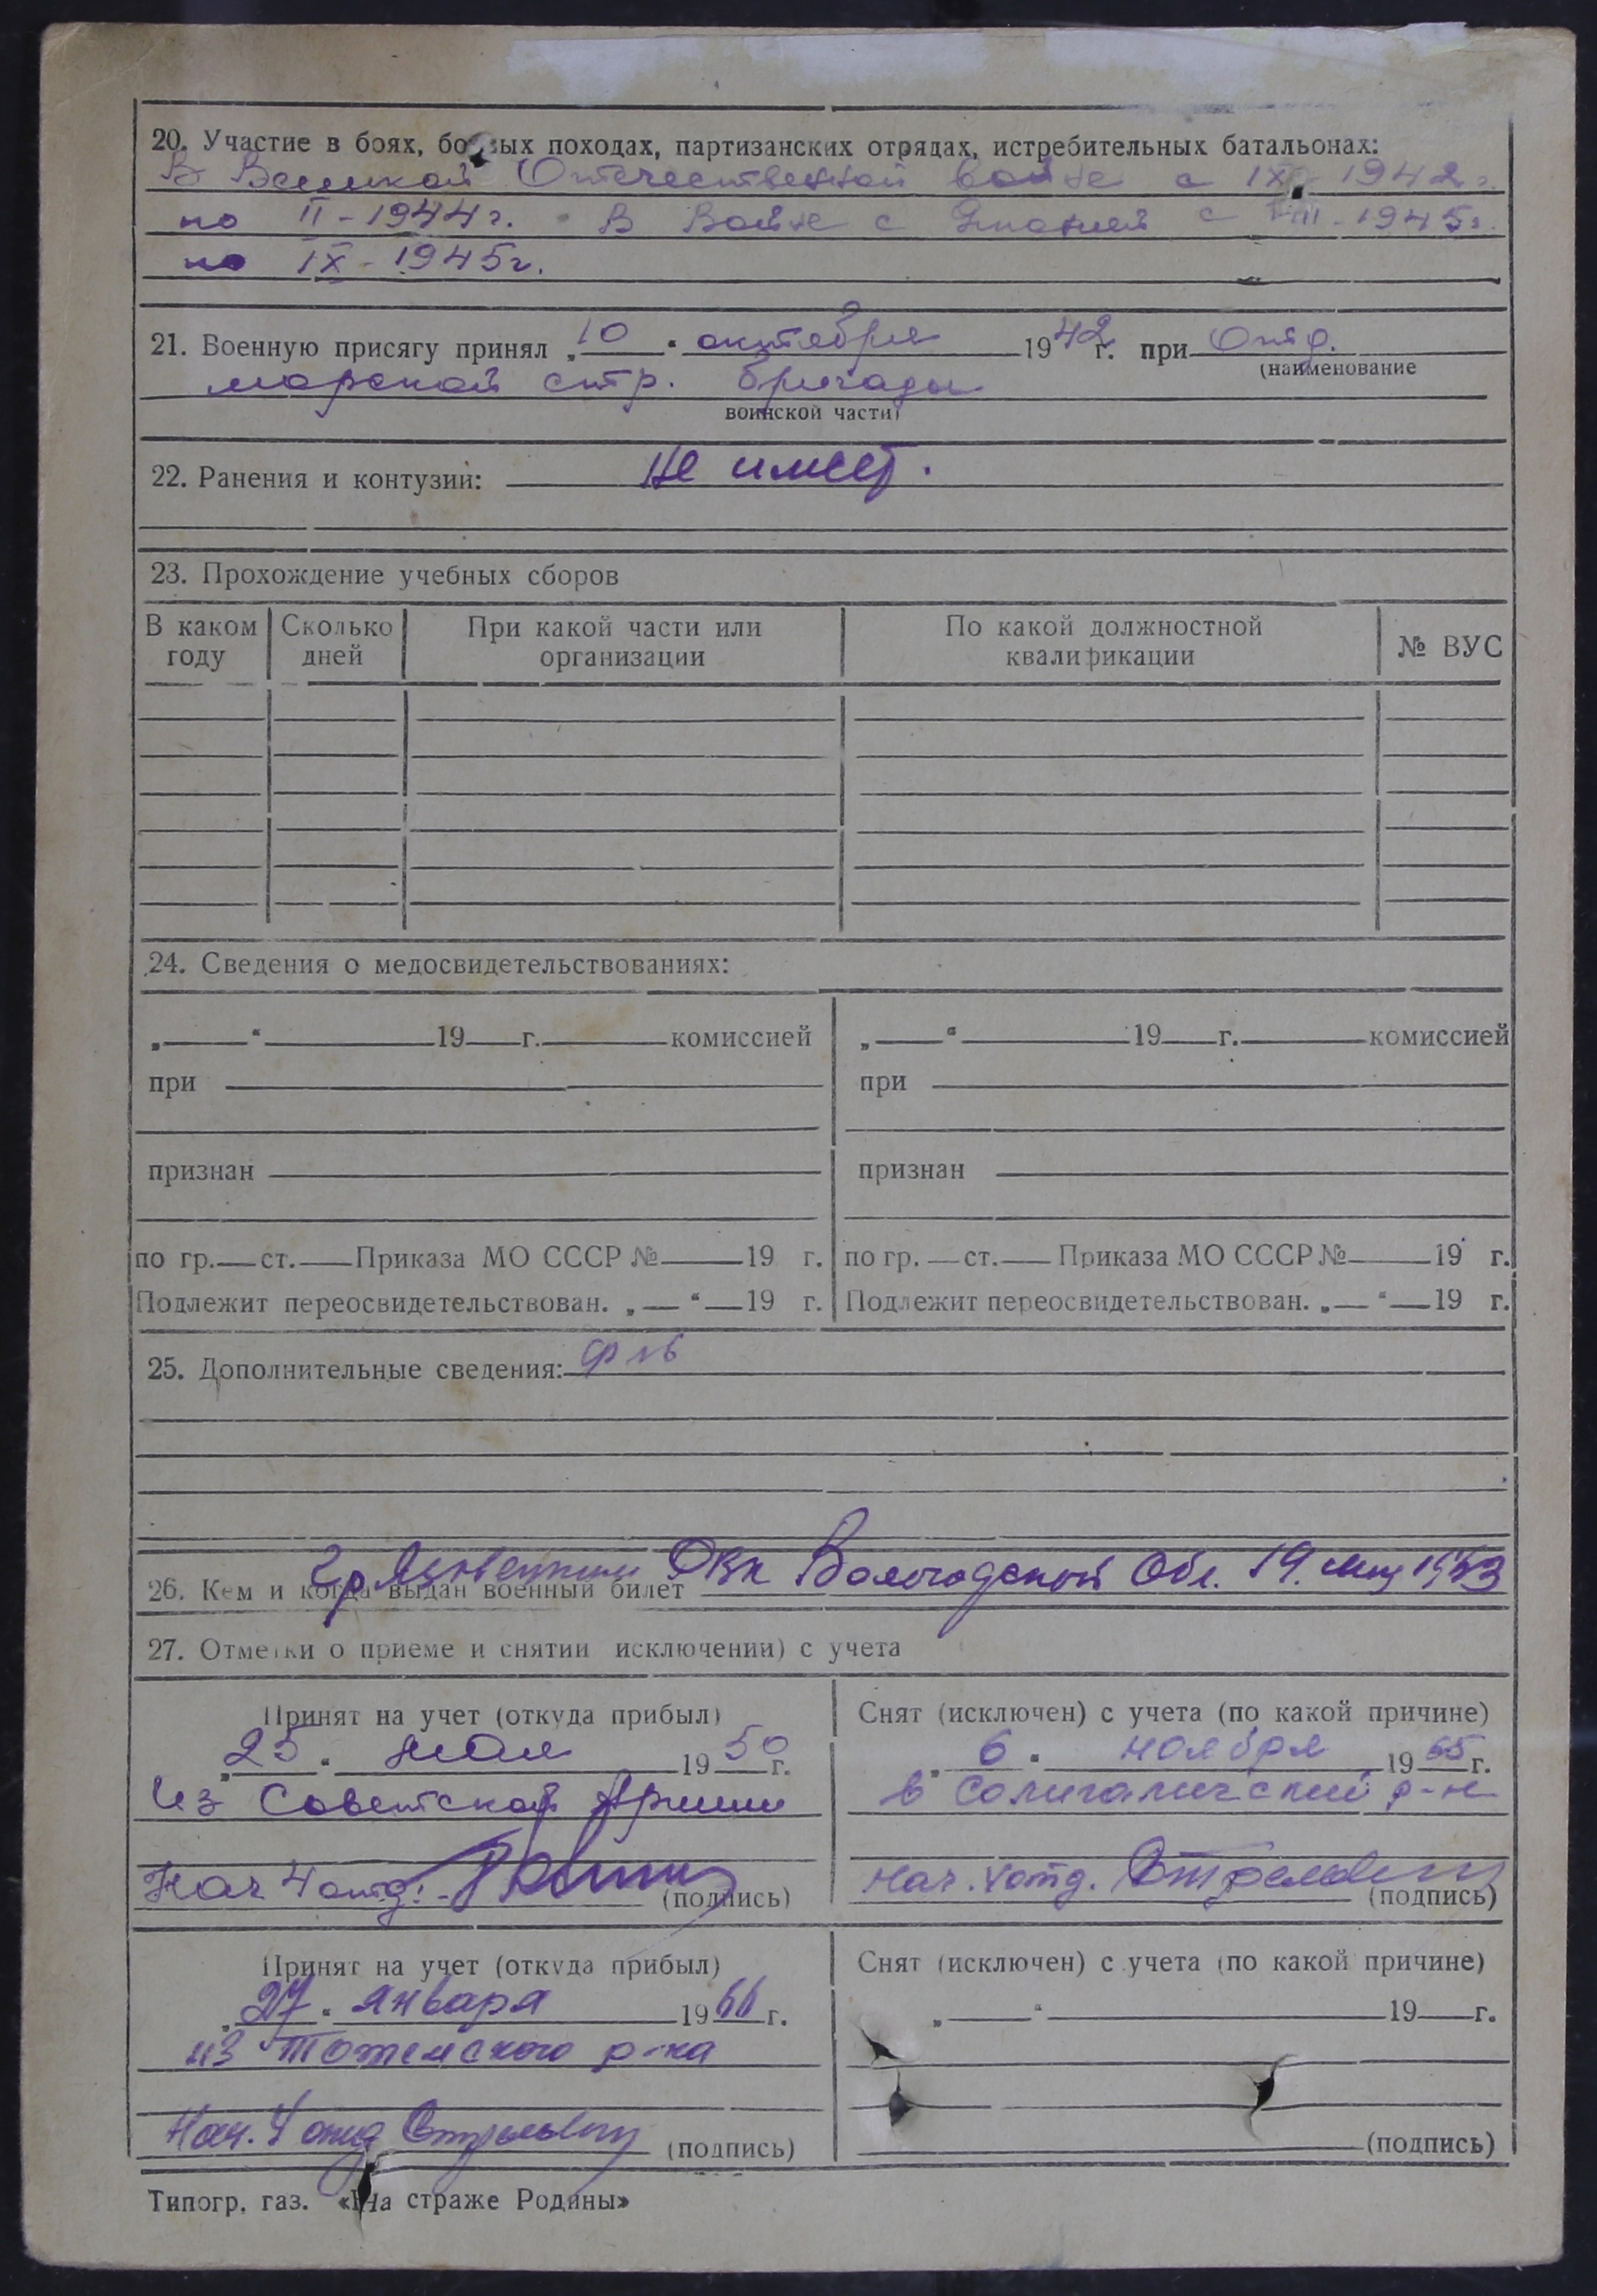 20. Участие в боях, боевых походах, партизанских отрядах, истребительных батальонах:
В Великой Отечественной войне с IX 1942г.
по II-1944г. В Войне с Японией с VIII-1945г.
по IX-1945г.
21. Военную присягу принял „10" октября 1942г. при Отд.
(наименование
морской стр. бригады
воинской части)
22. Ранения и контузии: не имеет.
23. Прохождение учебных сборов
В каком году Сколько дней При какой части или организации По какой должностной квалификации № ВУС
24. Сведения о медосвидетельствованиях:
„ " 19 г. комиссией „ " 19 г. комиссией
при при
признан признан
по гр. ст. Приказа МО СССР № 19 г. по гр. ст. Приказа МО СССР № 19 г.
Подлежит переосвидетельствован. „ " 19 г. Подлежит переосвидетельствован. „ " 19 г.
25. Дополнительные сведения:
26. Кем и когда выдан военный билет РВК Вологодской Обл. 19.
27. Отметки о приеме и снятии исключении) с учета
Принят на учет (откуда прибыл) Снят (исключен) с учета (по какой причине)
„25" мая 1950г. „6" ноября 1965г.
Из Советской Армии в Солигаличский р-н
Нач 4 отд. (подпись) Нач. 4 отд. (подпись)
Принят на учет (откуда прибыл) Снят (исключен) с учета (по какой причине)
„27" января 1966г. „ " 19 г.
из Тотемского р-на
Нач. 4 отд (подпись) (подпись)
Типогр. газ. «На страже Родины»